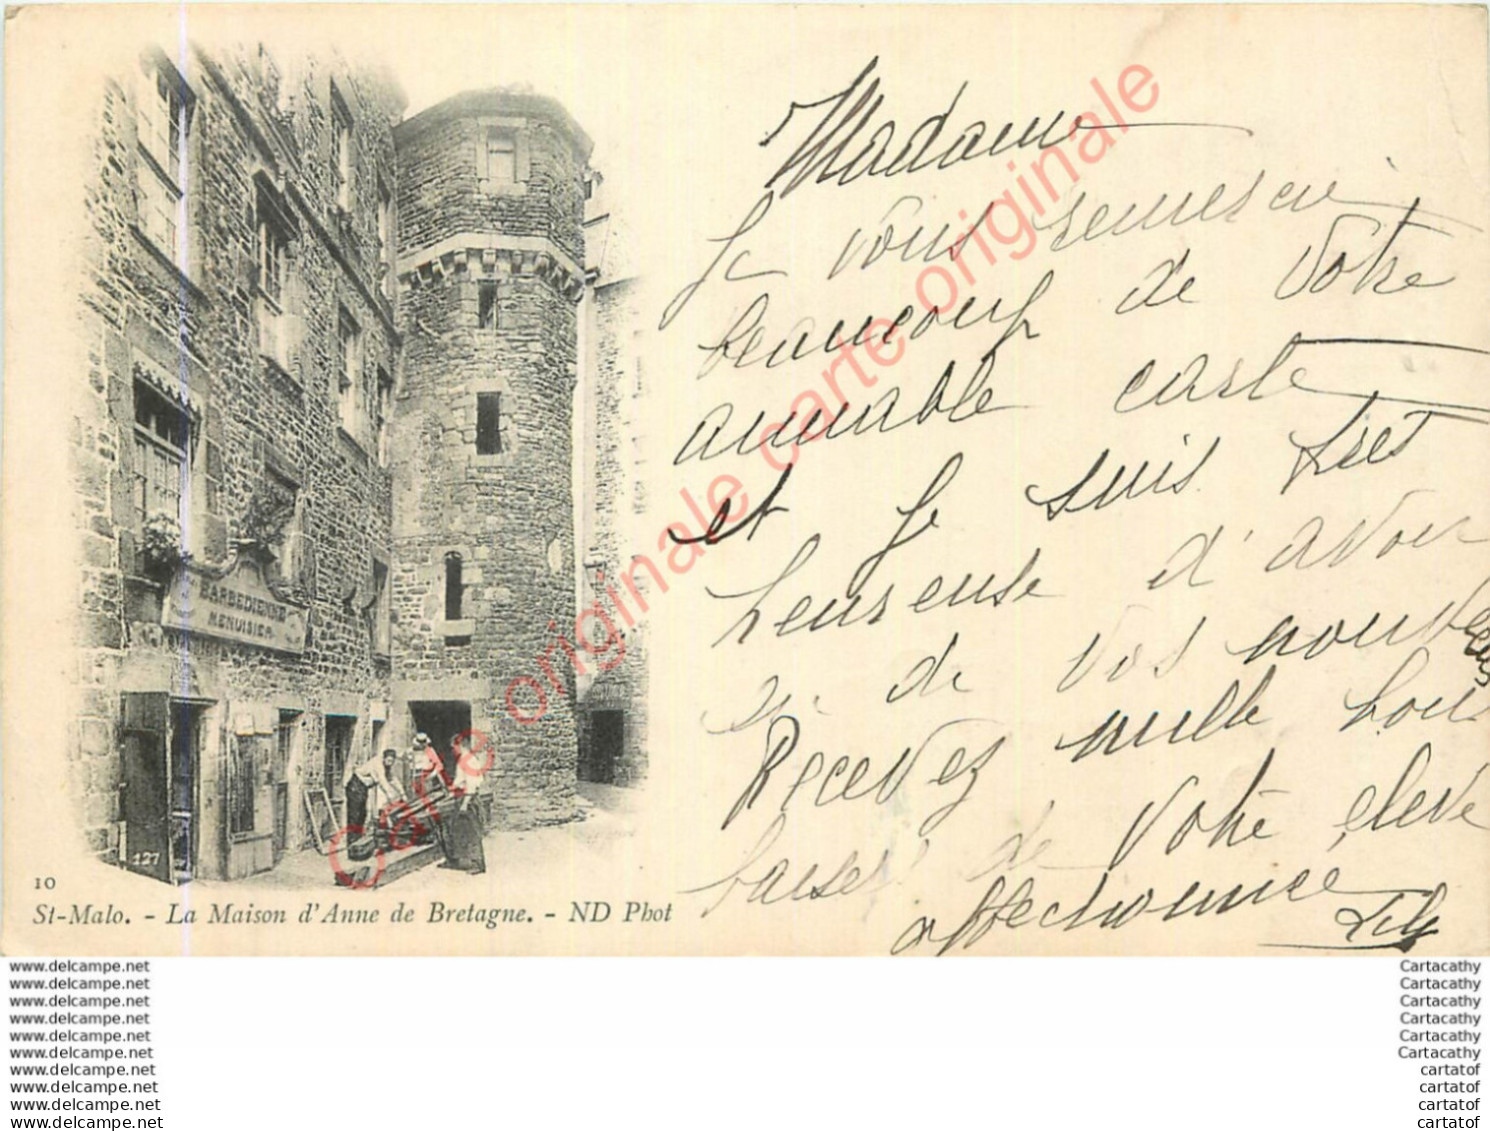 Madame
Je vous remercie
beaucoup de votre
aimable carte
et je suis très
heureuse d'avoir
de vos nouvelles
Recevez mille bons
baisers de votre élève
affectionnée
Lily
BARBEDIENNE
MENUISIER
127
10
St-Malo. - La Maison d'Anne de Bretagne. - ND Phot
Carte originale carte originale carte originale
www.delcampe.net
www.delcampe.net
www.delcampe.net
www.delcampe.net
www.delcampe.net
www.delcampe.net
www.delcampe.net
www.delcampe.net
www.delcampe.net
www.delcampe.net
Cartacathy
Cartacathy
Cartacathy
Cartacathy
Cartacathy
Cartacathy
cartatof
cartatof
cartatof
cartatof